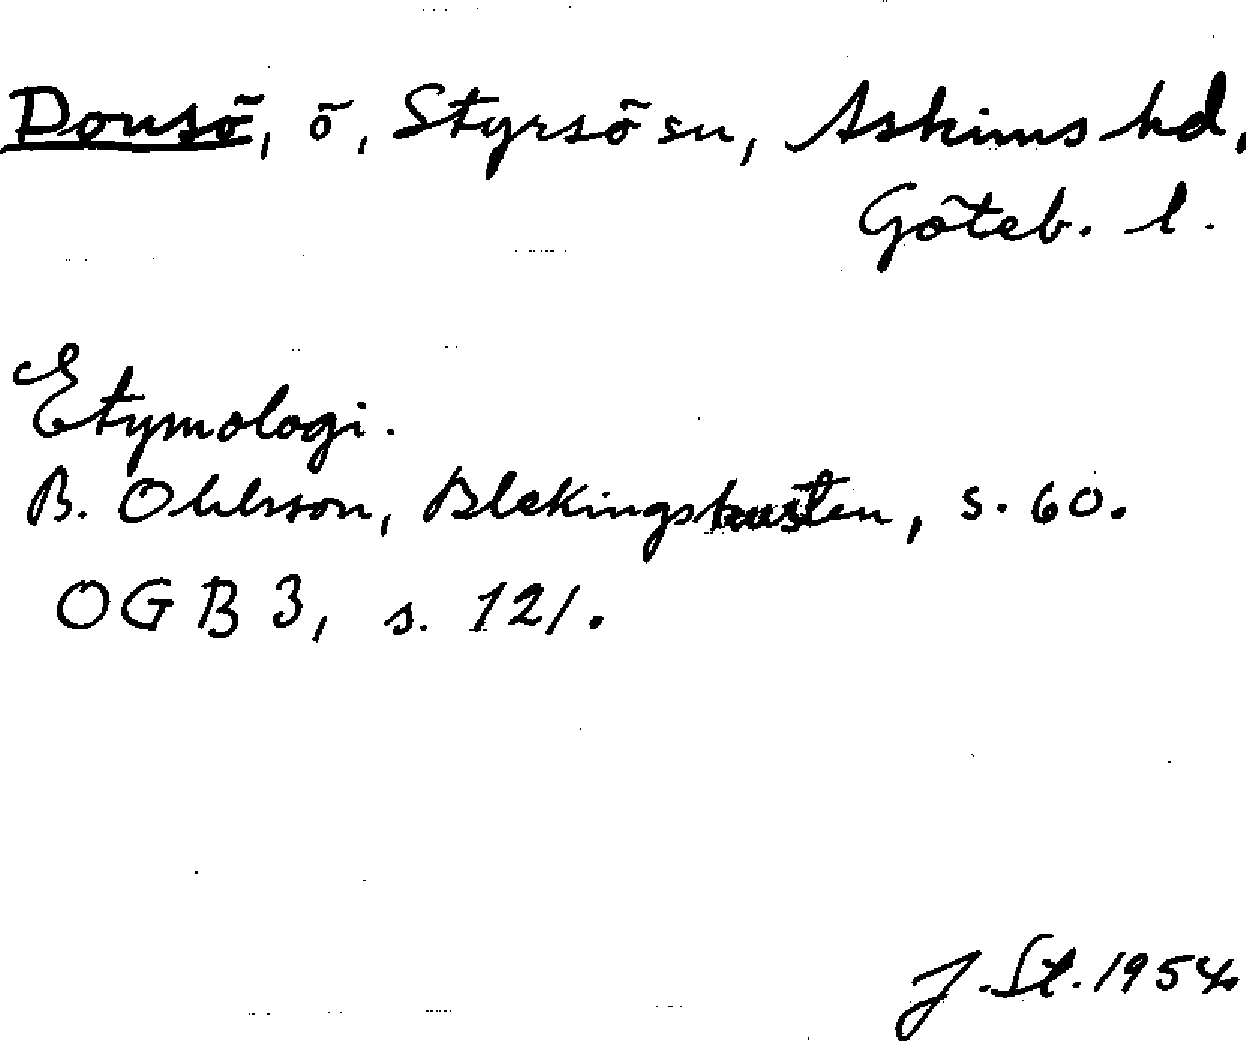 Donsö, ö, Styrsö sn, Askims hd,
Göteb. l.
Etymologi.
B. Ohlsson, Blekingskusten, s. 60.
OGB 3, s. 121.
J. St. 1954